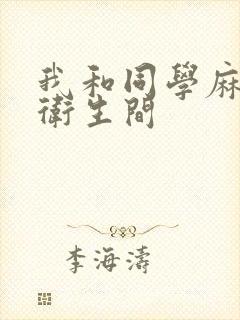 我和同學麻
衛生間
李海濤